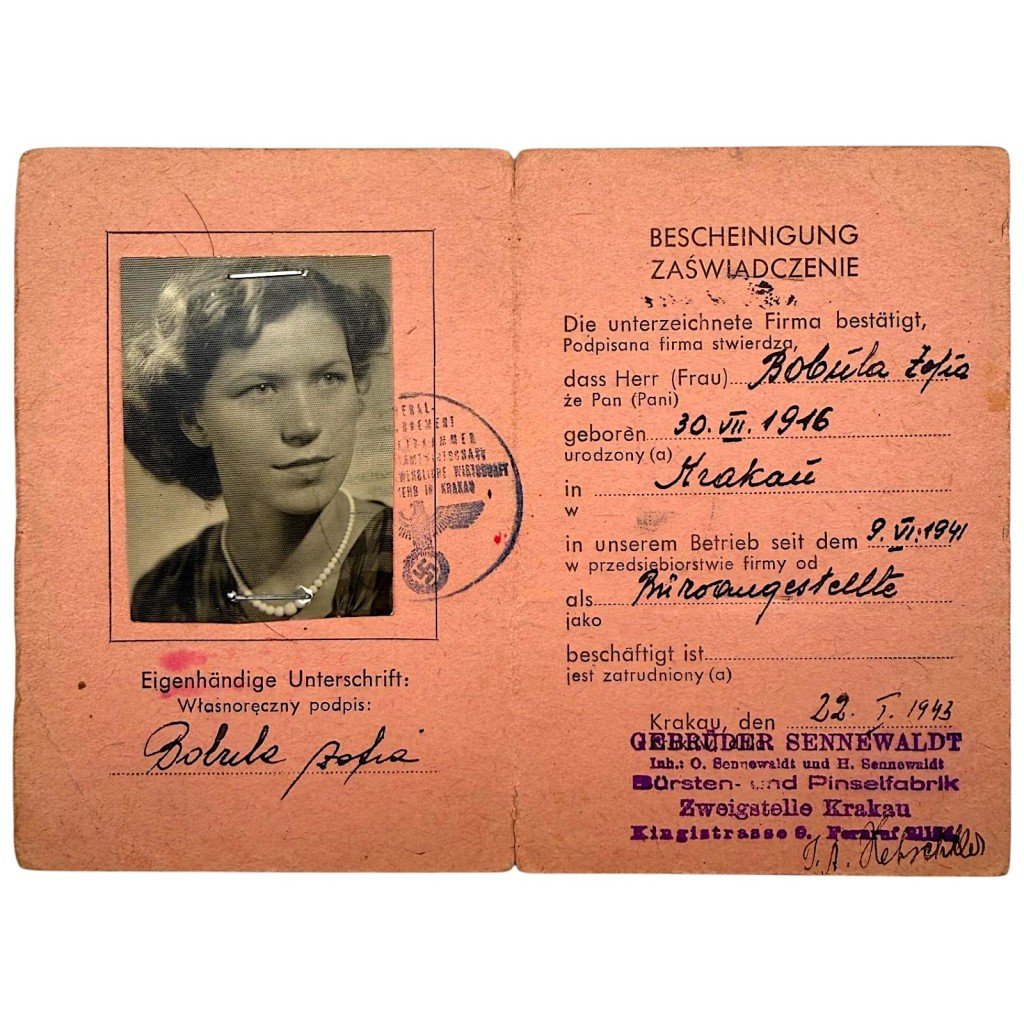 ERAL-
KAMMER
GEWERBLICHE WIRTSCHAFT
IN KRAKAU
Eigenhändige Unterschrift:
Własnoręczny podpis:
Bobula Zofia
BESCHEINIGUNG
ZAŚWIADCZENIE
Die unterzeichnete Firma bestätigt,
Podpisana firma stwierdza,
dass Herr (Frau) Bobula Zofia
że Pan (Pani)
geboren 30. VII. 1916
urodzony (a)
in Krakau
w
in unserem Betrieb seit dem 9. VI. 1941
w przedsiębiorstwie firmy od
als Büroangestellte
jako
beschäftigt ist
jest zatrudniony (a)
Krakau, den 22. I. 1943
GEBRÜDER SENNEWALDT
Inh.: O. Sennewaldt und H. Sennewaldt
Bürsten- und Pinselfabrik
Zweigstelle Krakau
Kingistrasse 9. Fernruf